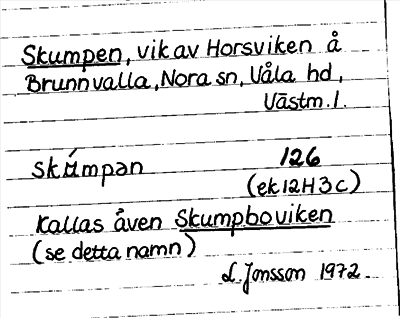 Skumpen, vik av Horsviken å
Brunnvalla, Nora sn, Våla hd,
Västm. l.
126
(ek 12H3c)
Kallas även Skumpboviken
(se detta namn)
L. Jonsson 1972.